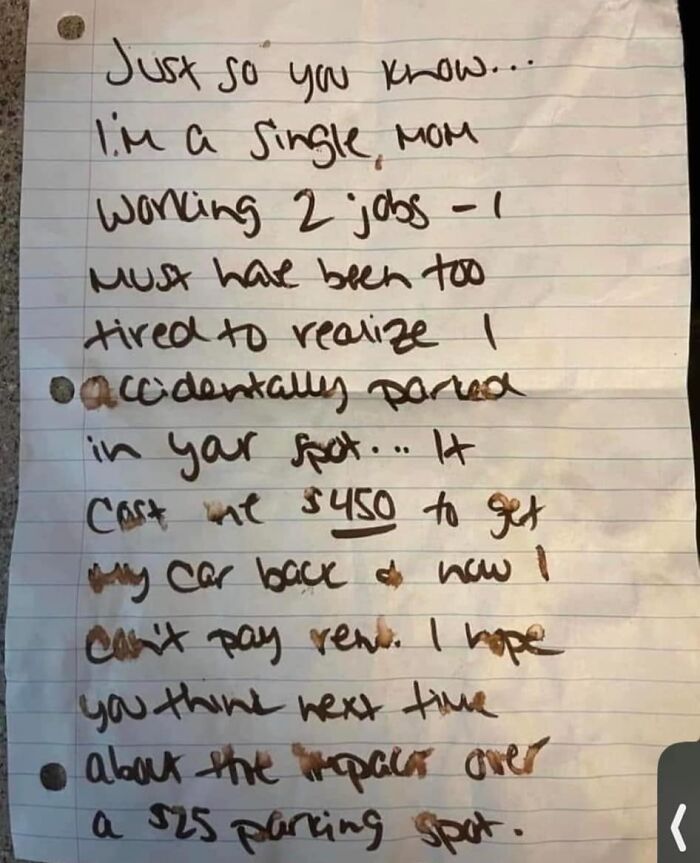 Just so you know...
I'm a single, mom
working 2 jobs - I
must have been too
tired to realize I
accidentally parked
in your spot... It
cost me $450 to get
my car back & now I
can't pay rent. I hope
you think next time
about the impact over
a $25 parking spot.